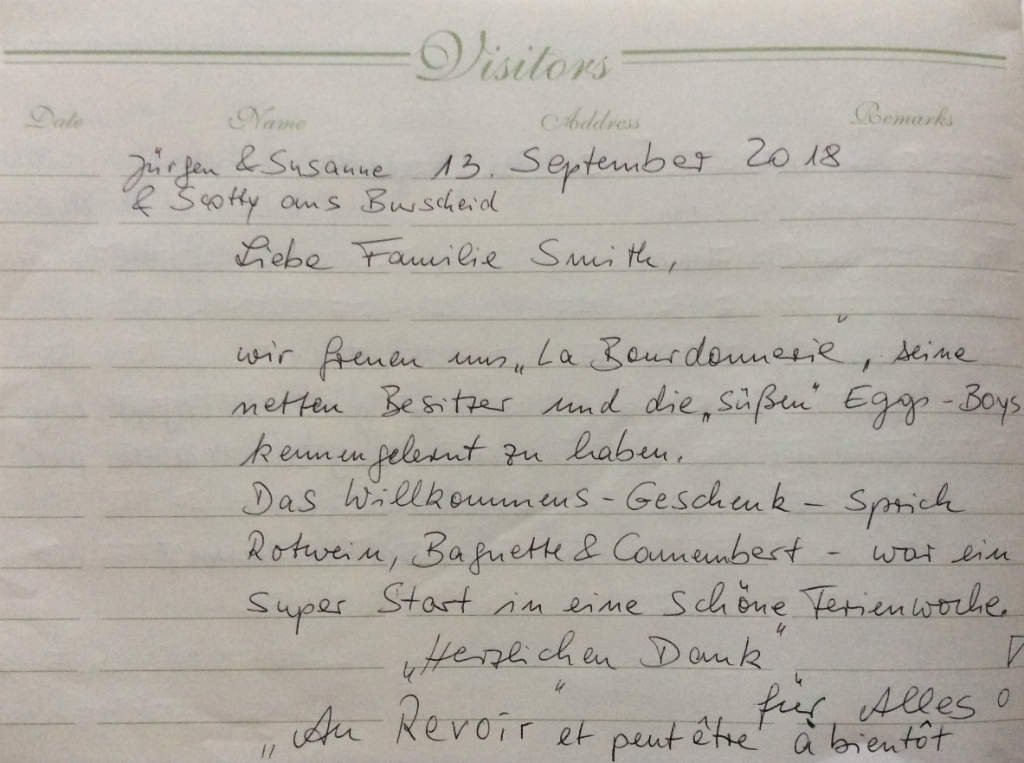 Visitors
Date Name Address Remarks
Jürgen & Susanne 13. September 2018
& Scotty aus Burscheid
Liebe Familie Smith,
wir freuen uns „La Bourdonnerie“, seine
netten Besitzer und die „süßen“ Eggs-Boys
kennengelernt zu haben.
Das Willkommens-Geschenk – sprich
Rotwein, Baguette & Camembert – war ein
super Start in eine schöne Ferienwoche.
„Herzlichen Dank“
für Alles!
„Au Revoir“ et peut être à bientôt